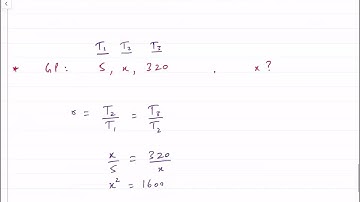 T₁ T₂ T₃
* GP: 5, x, 320 . x?
r = T₂/T₁ = T₃/T₂
x/5 = 320/x
x² = 1600